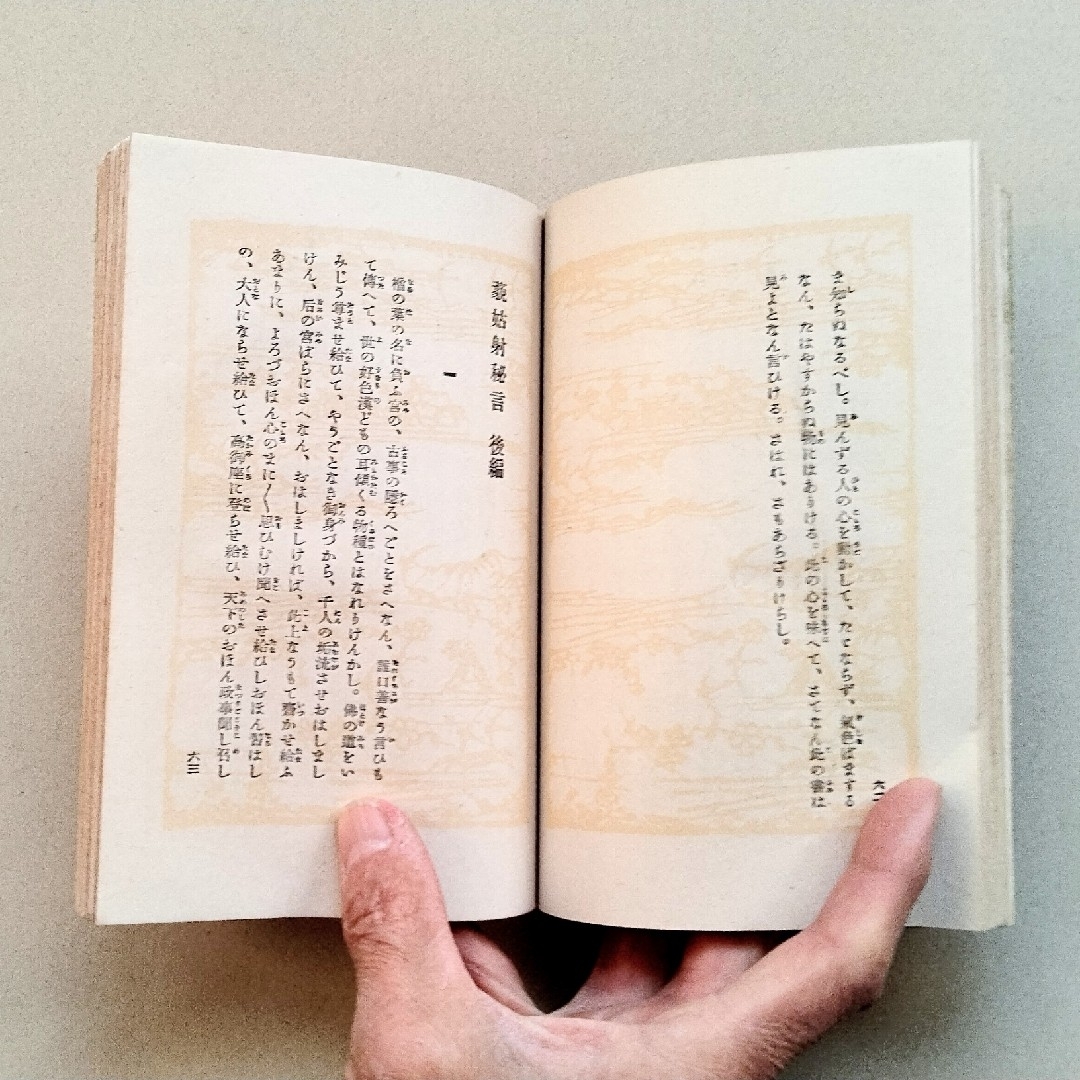 ま知らぬなるべし。見んずる人の心を動かして、たてならず、氣色ばまする
なん、たはやすからぬ物にはありける。此の心を味へて、さてなん此の書は
見よとなん言ひける。さはれ、さもあらざりけらし。
六二
藐姑射秘言 後編
一
楢の葉の名に負ふ宮の、古事の隱ろへごとをさへなん、誰口善なう言ひも
て傳へて、世の好色漢どもの耳傾くる物種とはなれりけんかし。佛の道をい
みじう尊ませ給ひて、やうごとなき御身づから、千人の垢流させおはしまし
けん、后の宮ばらにさへなん、おはしましければ、此上なうもて齋かせ給ふ
あまりに、よろづおほん心のまに〱思ひむけ聞へさせ給ひしおほん習はし
の、大人にならせ給ひて、高御座に登らせ給ひ、天下のおほん政事聞し召し
六三